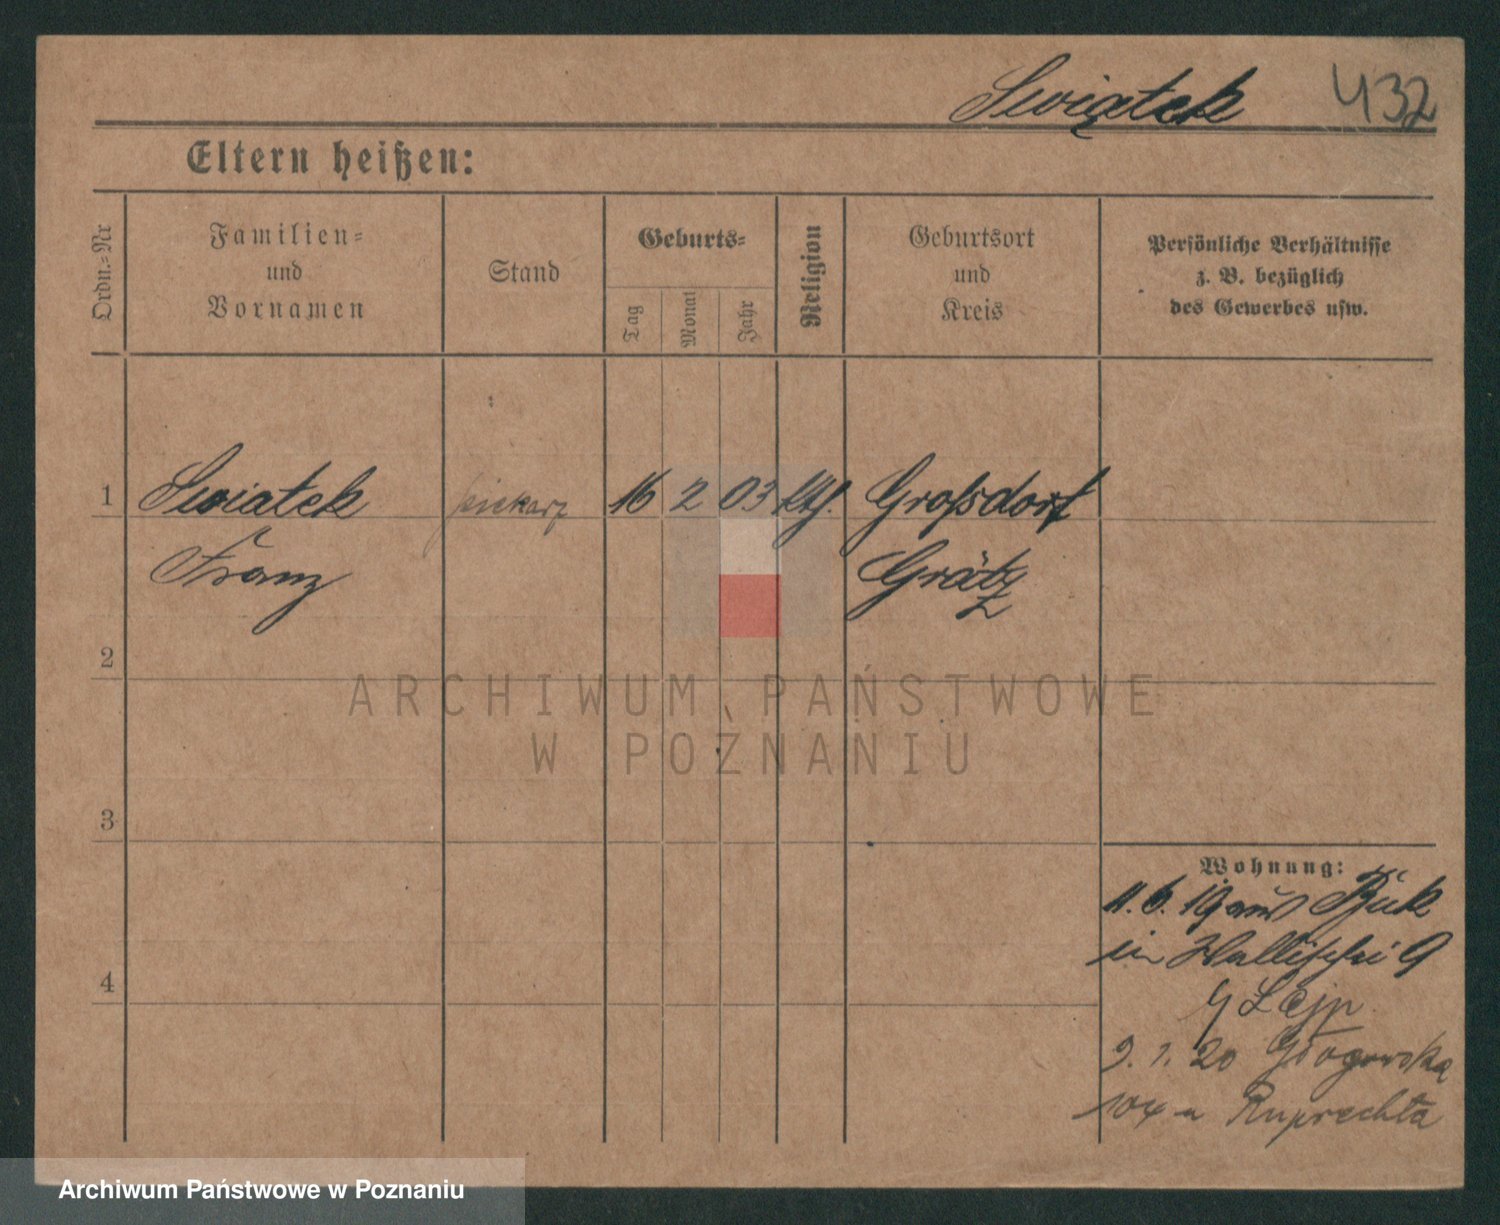 Swiątek 432
Eltern heißen:
Ordn.-Nr
Familien-
und
Vornamen
Stand
Geburts-
Tag
Monat
Jahr
Religion
Geburtsort
und
Kreis
Persönliche Verhältnisse
z. B. bezüglich
des Gewerbes usw.
1 Swiatek piekarz 16 2 03 kth. Großdorf
Franz Grätz
2
3
4
Wohnung:
11. 6. 19 aus Buk
in Wallischei 9
b/ Lejp
9. 1. 20 Głogowska
104 u Ruprechta
ARCHIWUM PAŃSTWOWE
W POZNANIU
Archiwum Państwowe w Poznaniu